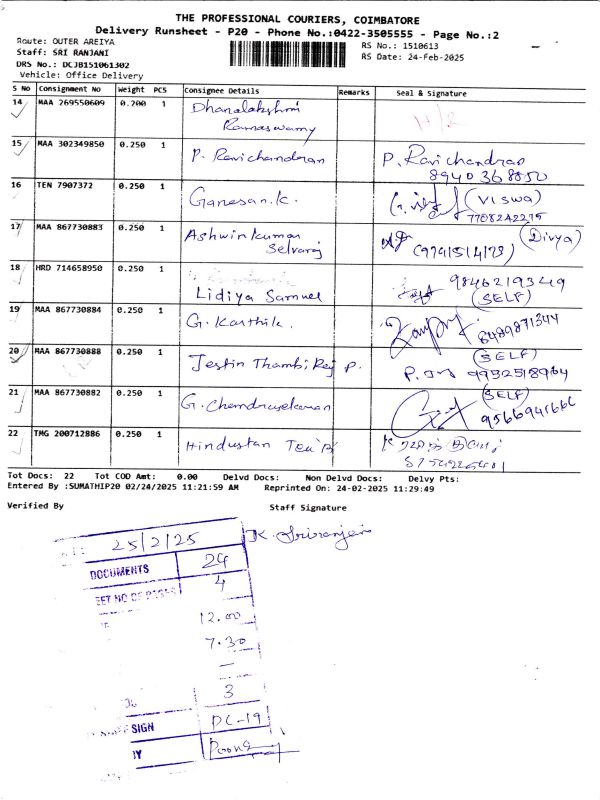 THE PROFESSIONAL COURIERS, COIMBATORE
Delivery Runsheet - P20 - Phone No.:0422-3505555 - Page No.:2
Route: OUTER AREIYA
Staff: SRI RANJANI
DRS No.: DCJB151061302
Vehicle: Office Delivery
RS No.: 1510613
RS Date: 24-Feb-2025
S No Consignment No Weight PCS Consignee Details Remarks Seal & Signature
14 MAA 269550609 0.200 1 Dhanalakshmi
Ramaswamy
15 MAA 302349850 0.250 1 P. Ravichandran P. Ravichandran
8940368850
16 TEN 7907372 0.250 1 Ganesan.K. (VISWA)
7708242215
17 MAA 867730883 0.250 1 Ashwinkumar (Divya)
Selvaraj (9791514173)
18 HRD 714658950 0.250 1 9846219349
Lidiya Samuel (SELF)
19 MAA 867730884 0.250 1 G. Karthik. 8489871344
(SELF)
20 MAA 867730888 0.250 1 Jestin Thambi Raj P. 9952518964
(SELF)
21 MAA 867730882 0.250 1 G. Chandrasekaran
22 TMG 200712886 0.250 1 Hindustan
Tot Docs: 22 Tot COD Amt: 0.00 Delvd Docs: Non Delvd Docs: Delvy Pts:
Entered By :SUMATHIP20 02/24/2025 11:21:59 AM Reprinted On: 24-02-2025 11:29:49
Verified By Staff Signature
25/2/25
DOCUMENTS 24
4
12.00
7.30
—
3
SIGN DC-19